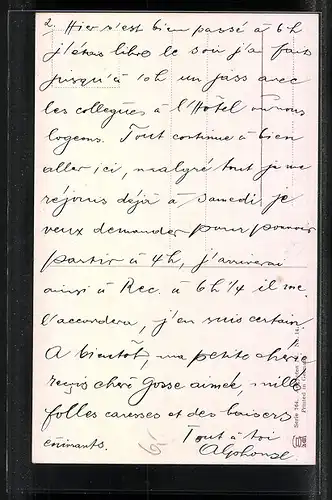 2. Hier s'est bien passé à 6h
j'étais libre le soir j'ai fait
jusqu'à 10h un jass avec
les collegues à l'Hôtel où nous
logeons. Tout continue à bien
aller ici, malgré tout je me
réjouis déjà à samedi je
veux demander pour pouvoir
partir à 4h, j'arriverai
ainsi à Rec. à 6h 1/4 il me
l'accordera, j'en suis certain.
A bientôt, ma petite chérie
reçois chère Gosse aimée, mille
folles caresses et des baisers
Tout à toi
Alphonse
Serie 244
Printed in